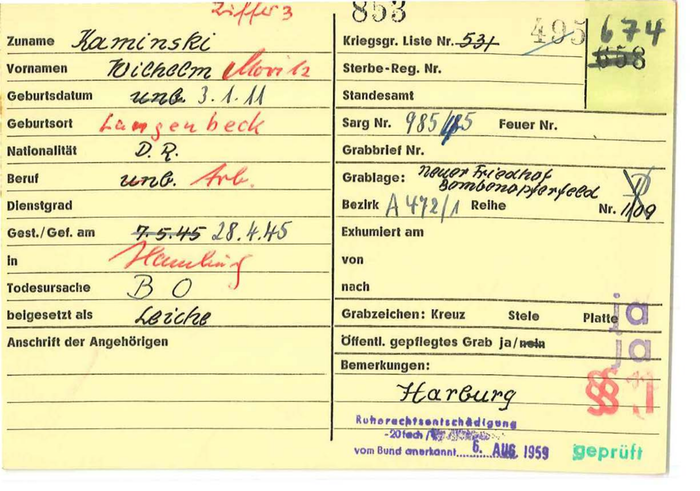 Ziffer 3
853
495
674
658
Zuname Kaminski
Vornamen Wilhelm Moritz
Geburtsdatum unb. 3.1.11
Geburtsort Langenbeck
Nationalität D. R.
Beruf unb. Arb.
Dienstgrad
Gest./Gef. am 7.5.45 28.4.45
in Hamburg
Todesursache B O
beigesetzt als Leiche
Anschrift der Angehörigen
Kriegsgr. Liste Nr. 531
Sterbe-Reg. Nr.
Standesamt
Sarg Nr. 985/45 Feuer Nr.
Grabbrief Nr.
Grablage: Neuer Friedhof
Bombenopferfeld
Bezirk A 472/1 Reihe Nr. 1109
Exhumiert am
von
nach
Grabzeichen: Kreuz Stele Platte ja
Öffentl. gepflegtes Grab ja/nein ja
Bemerkungen:
Harburg
§§ 1
Ruherechtsentschädigung
-20fach/
vom Bund anerkannt 6. AUG. 1959
geprüft